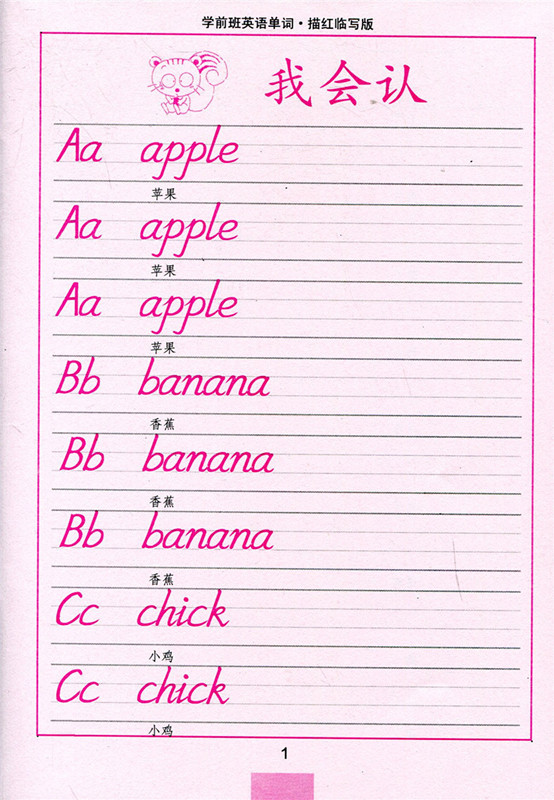 学前班英语单词·描红临写版
我会认
Aa apple
苹果
Aa apple
苹果
Aa apple
苹果
Bb banana
香蕉
Bb banana
香蕉
Bb banana
香蕉
Cc chick
小鸡
Cc chick
小鸡
1